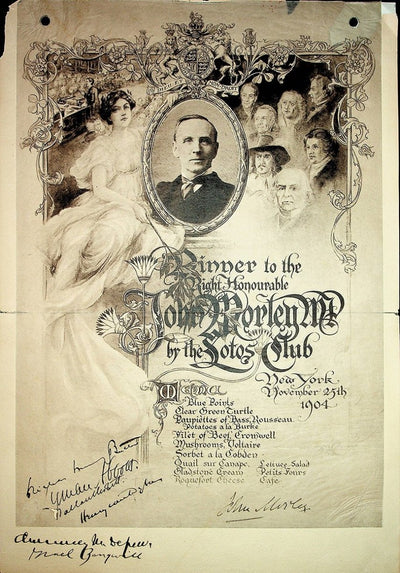 Dinner to the
Right Honourable
John Morley M.P.
by the Lotos Club
New York
November 25th
1904
Menu
Blue Points
Clear Green Turtle
Paupiettes of Bass, Rousseau
Potatoes a la Burke
Filet of Beef, Cromwell
Mushrooms, Voltaire
Sorbet a la Cobden
Quail sur Canape. Lettuce Salad
Gladstone Cream Petits Fours
Roquefort Cheese Cafe
John Morley
Chauncey M. Depew